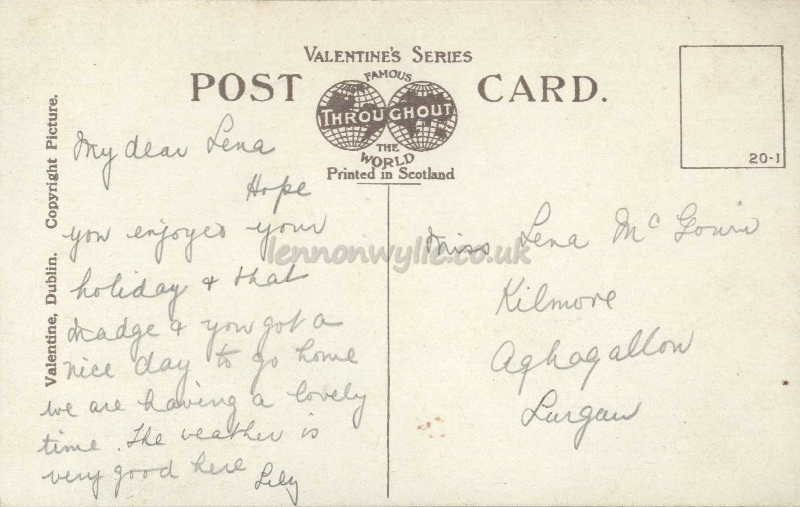 VALENTINE'S SERIES
POST CARD.
FAMOUS
THROUGHOUT
THE
WORLD
Printed in Scotland
20-1
Valentine, Dublin. Copyright Picture.
My dear Lena
Hope
you enjoyed your
holiday & that
Madge & you got a
nice day to go home
we are having a lovely
time. The weather is
very good here
Lily
Miss Lena Mc
Kilmore
Aghagallon
Lurgan
lennonwylie.co.uk